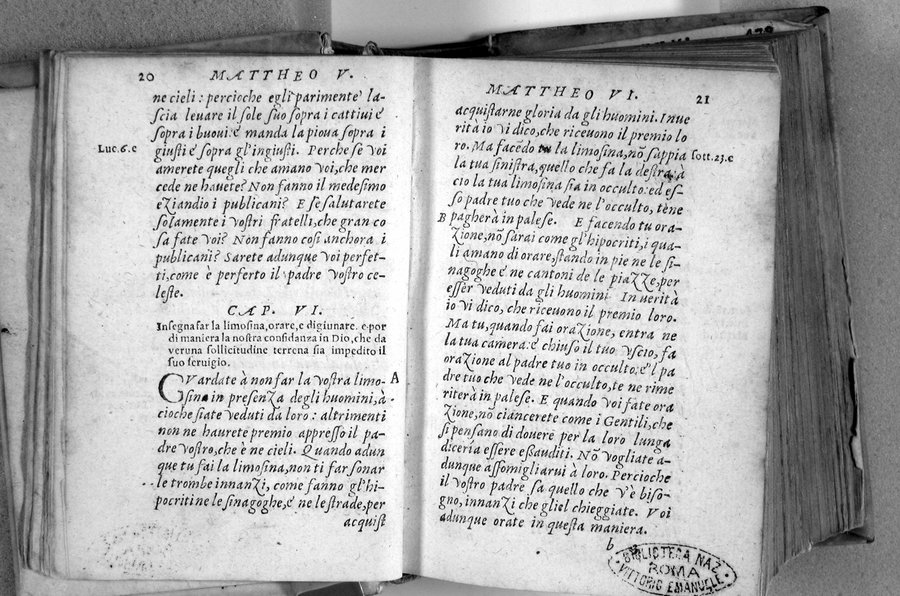 20 MATTHEO V.
ne cieli: percioche egli parimente la-
scia leuare il sole suo sopra i cattiui e
sopra i buoui: e manda la pioua sopra i
giusti e sopra gl'ingiusti. Perche se voi
Luc. 6. c
amerete quegli che amano voi, che mer
cede ne hauete? Non fanno il medesimo
eziandio i publicani? E se salutarete
solamente i vostri fratelli, che gran co
sa fate voi? Non fanno così anchora i
publicani? Sarete adunque voi perfet-
ti, come è perferto il padre vostro ce-
leste.
CAP. VI.
Insegna far la limosina, orare, e digiunare. e por
di maniera la nostra confidanza in Dio, che da
veruna sollicitudine terrena sia impedito il
suo seruigio.
GVardate à non far la vostra limo-
A
sina in presenza degli huomini, à
cioche siate veduti da loro: altrimenti
non ne haurete premio appresso il pa-
dre vostro, che è ne cieli. Quando adun
que tu fai la limosina, non ti far sonar
le trombe innanzi, come fanno gl'hi-
pocriti ne le sinagoghe, e ne le strade, per
acquist
MATTHEO VI. 21
acquistarne gloria da gli huomini. In ue
rità io vi dico, che riceuono il premio lo
ro. Ma facẽdo tu la limosina, nõ sappia
sott. 23. c
la tua sinistra, quello che fa la destra: à
cio la tua limosina sia in occulto: ed es-
so padre tuo che vede ne l'occulto, tene
B pagherà in palese. E facendo tu ora-
zione, nõ sarai come gl'hipocriti, i qua-
li amano di orare, stando in pie ne le si-
nagoghe e ne cantoni de le piazze, per
esser veduti da gli huomini In uerità
io vi dico, che riceuono il premio loro.
Ma tu, quando fai orazione, entra ne
la tua camera: e chiuso il tuo vscio, fa
orazione al padre tuo in occulto: e'l pa
dre tuo che vede ne l'occulto, te ne rime
riterà in palese. E quando voi fate ora
zione, nõ ciancerete come i Gentili, che
si pensano di douere per la loro lunga
diceria essere essauditi. Nõ vogliate a-
dunque assomigliarui à loro. Percioche
il vostro padre sa quello che v'è biso-
gno, innanzi che gliel chieggiate. Voi
adunque orate in questa maniera.
b
BIBLIOTECA NAZ
ROMA
VITTORIO EMANUELE